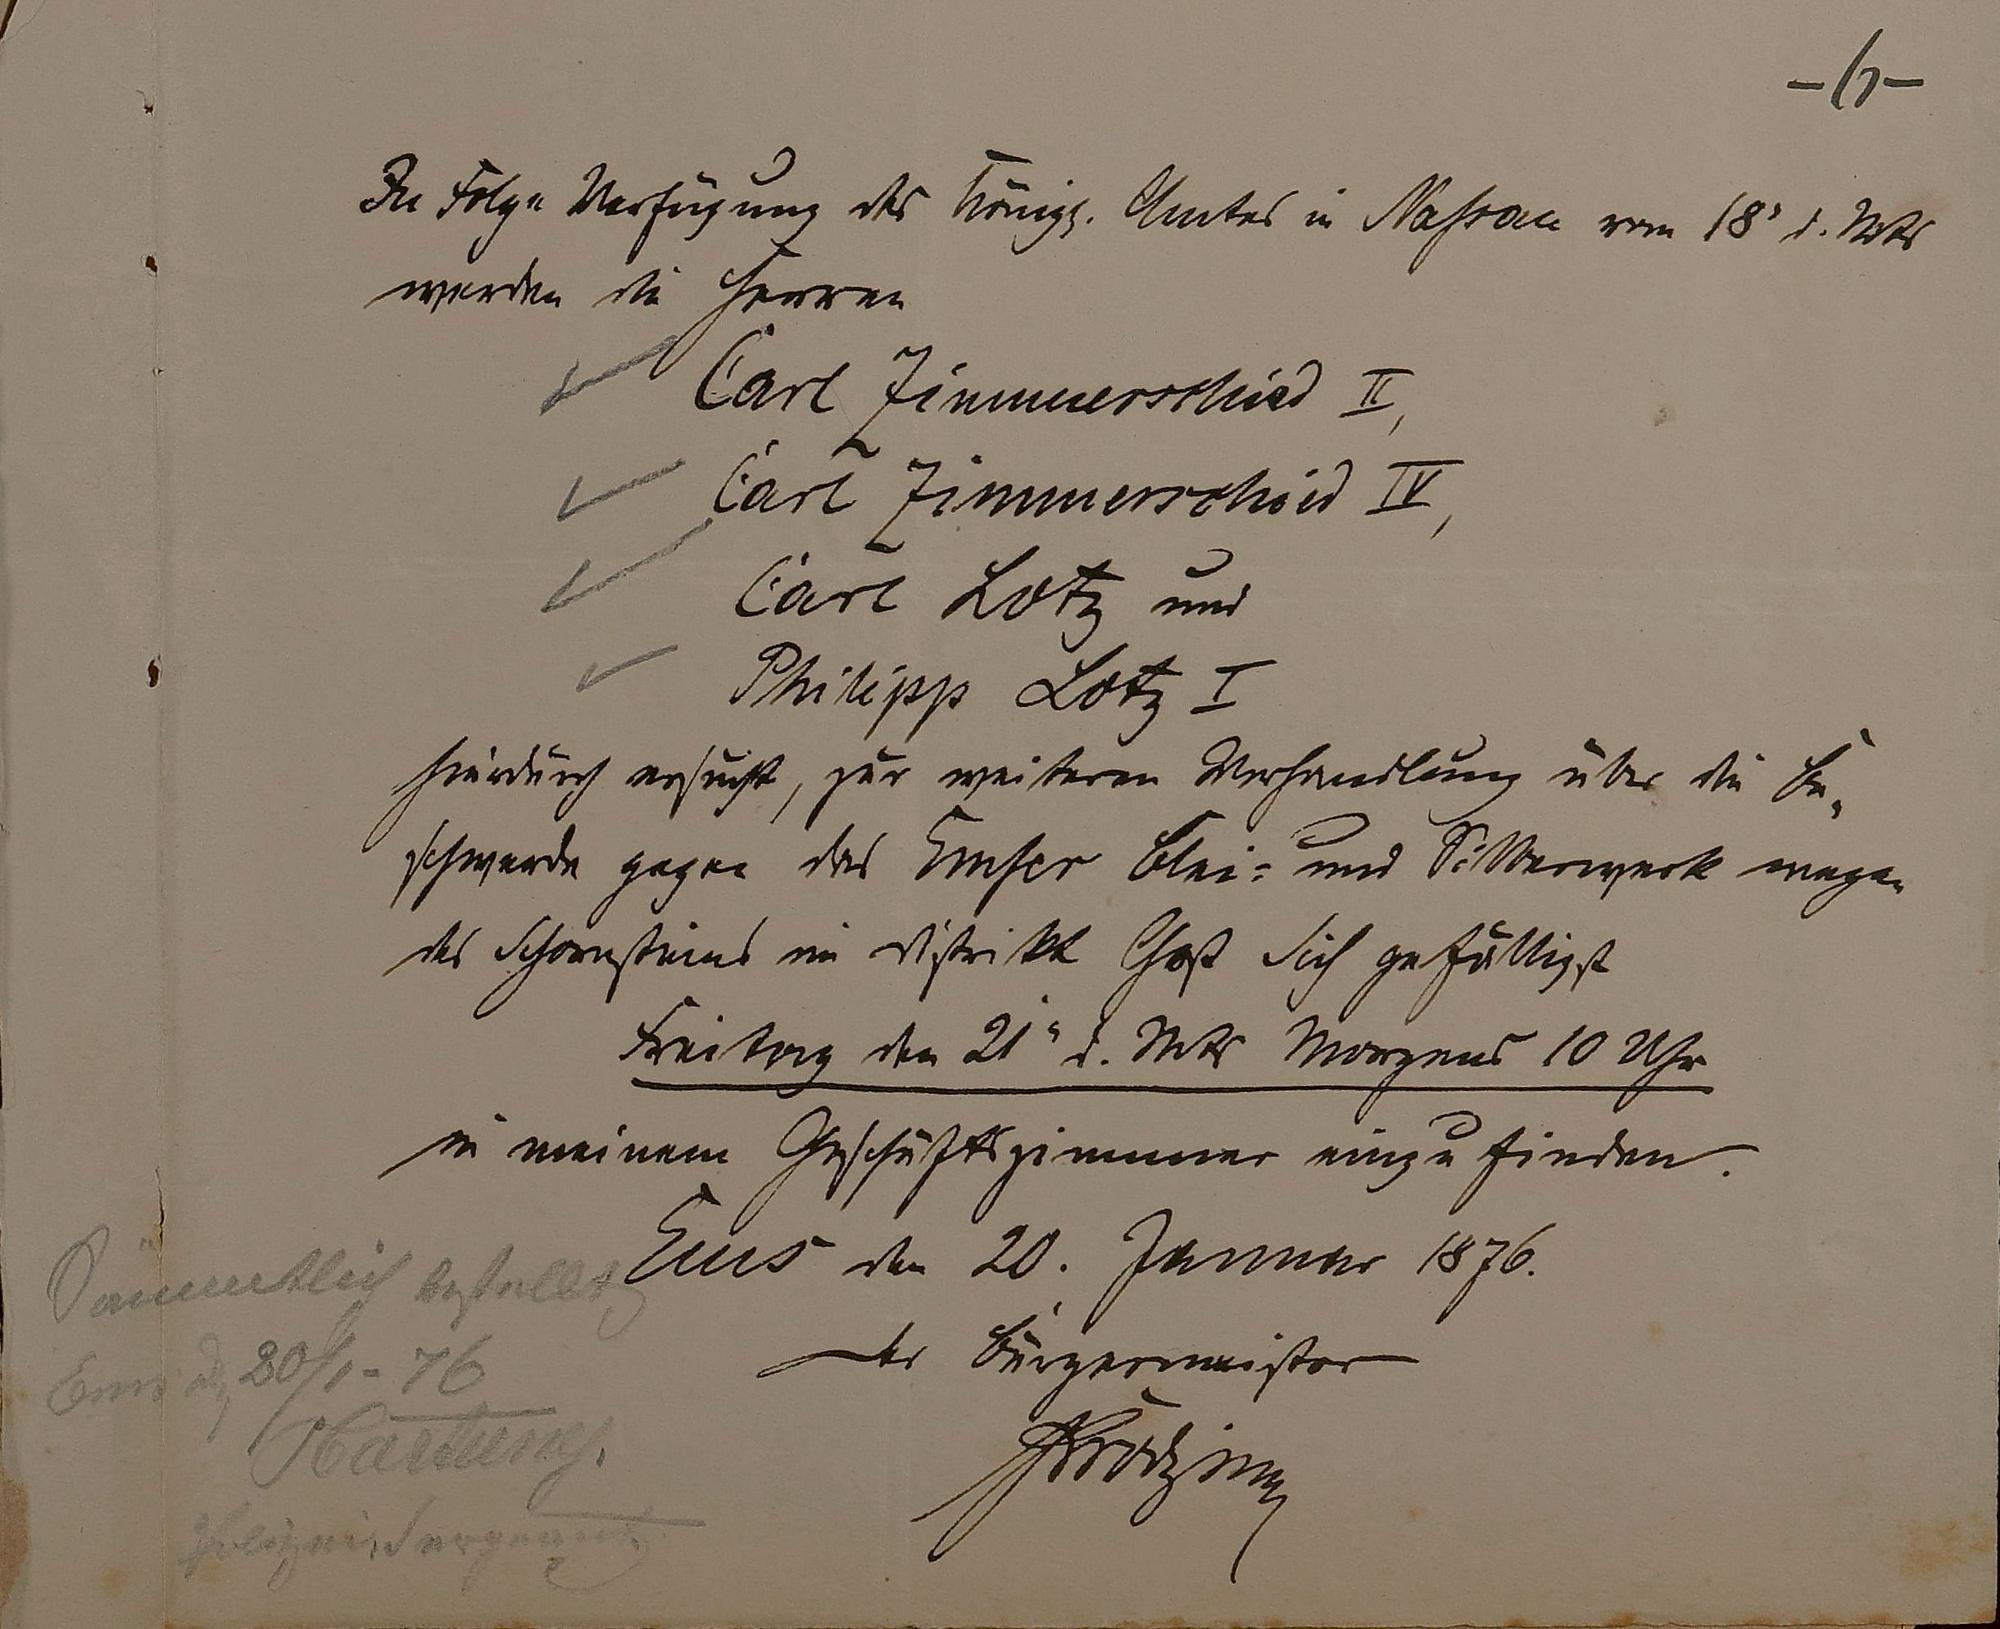 -6-
In Folge Verfügung des Königl. Amtes in Nassau vom 18" d. Mts
werden die Herren
Carl Zimmerschied II,
Carl Zimmerschied IV,
Carl Lotz und
Philipp Lotz I
hierdurch ersucht, zur weiteren Verhandlung über die Be-
schwerde gegen das Emser Blei- und Silberwerk wegen
des Schornsteins im Distrikt sich gefälligst
Freitag den 21" d. Mts Morgens 10 Uhr
in meinem Geschäftszimmer einzufinden.
Ems den 20. Januar 1876.
Der Bürgermeister
Sämmtlich bestellt
Ems d, 20/1-76
Hartung.
Polizei-Sergeant.